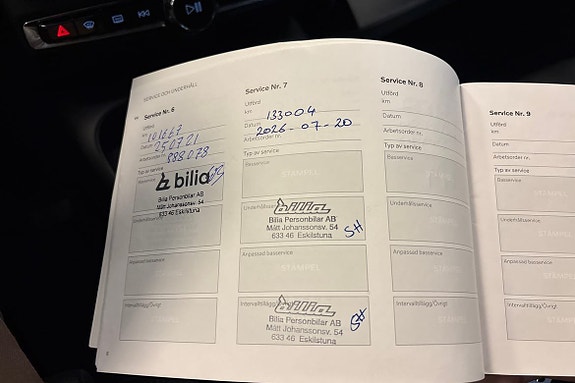 SERVICE OCH UNDERHÅLL
Service Nr. 6
Utförd
km 101667
Datum 250721
Arbetsorder nr. 888078
Typ av service
Basservice
bilia
Bilia Personbilar AB
Mått Johanssonsv. 54
633 46 Eskilstuna
Underhållsservice
Anpassad basservice
STÄMPEL
Intervalltillägg/Övrigt
STÄMPEL
Service Nr. 7
Utförd
km 133004
Datum 2026-07-20
Arbetsorder nr.
Typ av service
Basservice
STÄMPEL
Underhållsservice
bilia
Bilia Personbilar AB
Mått Johanssonsv. 54
633 46 Eskilstuna
SH
Anpassad basservice
STÄMPEL
bilia
Bilia Personbilar AB
Mått Johanssonsv. 54
633 46 Eskilstuna
SH
Service Nr. 8
Utförd
km
Datum
Arbetsorder nr.
Typ av service
Basservice
Underhållsservice
Anpassad basservice
STÄMPEL
Intervalltillägg/Övrigt
STÄMPEL
Service Nr. 9
Utförd
km
Datum
Arbetsorder nr.
Typ av service
Basservice
Underhållsservice
Anpassad basservice
Intervalltillägg/Övrigt